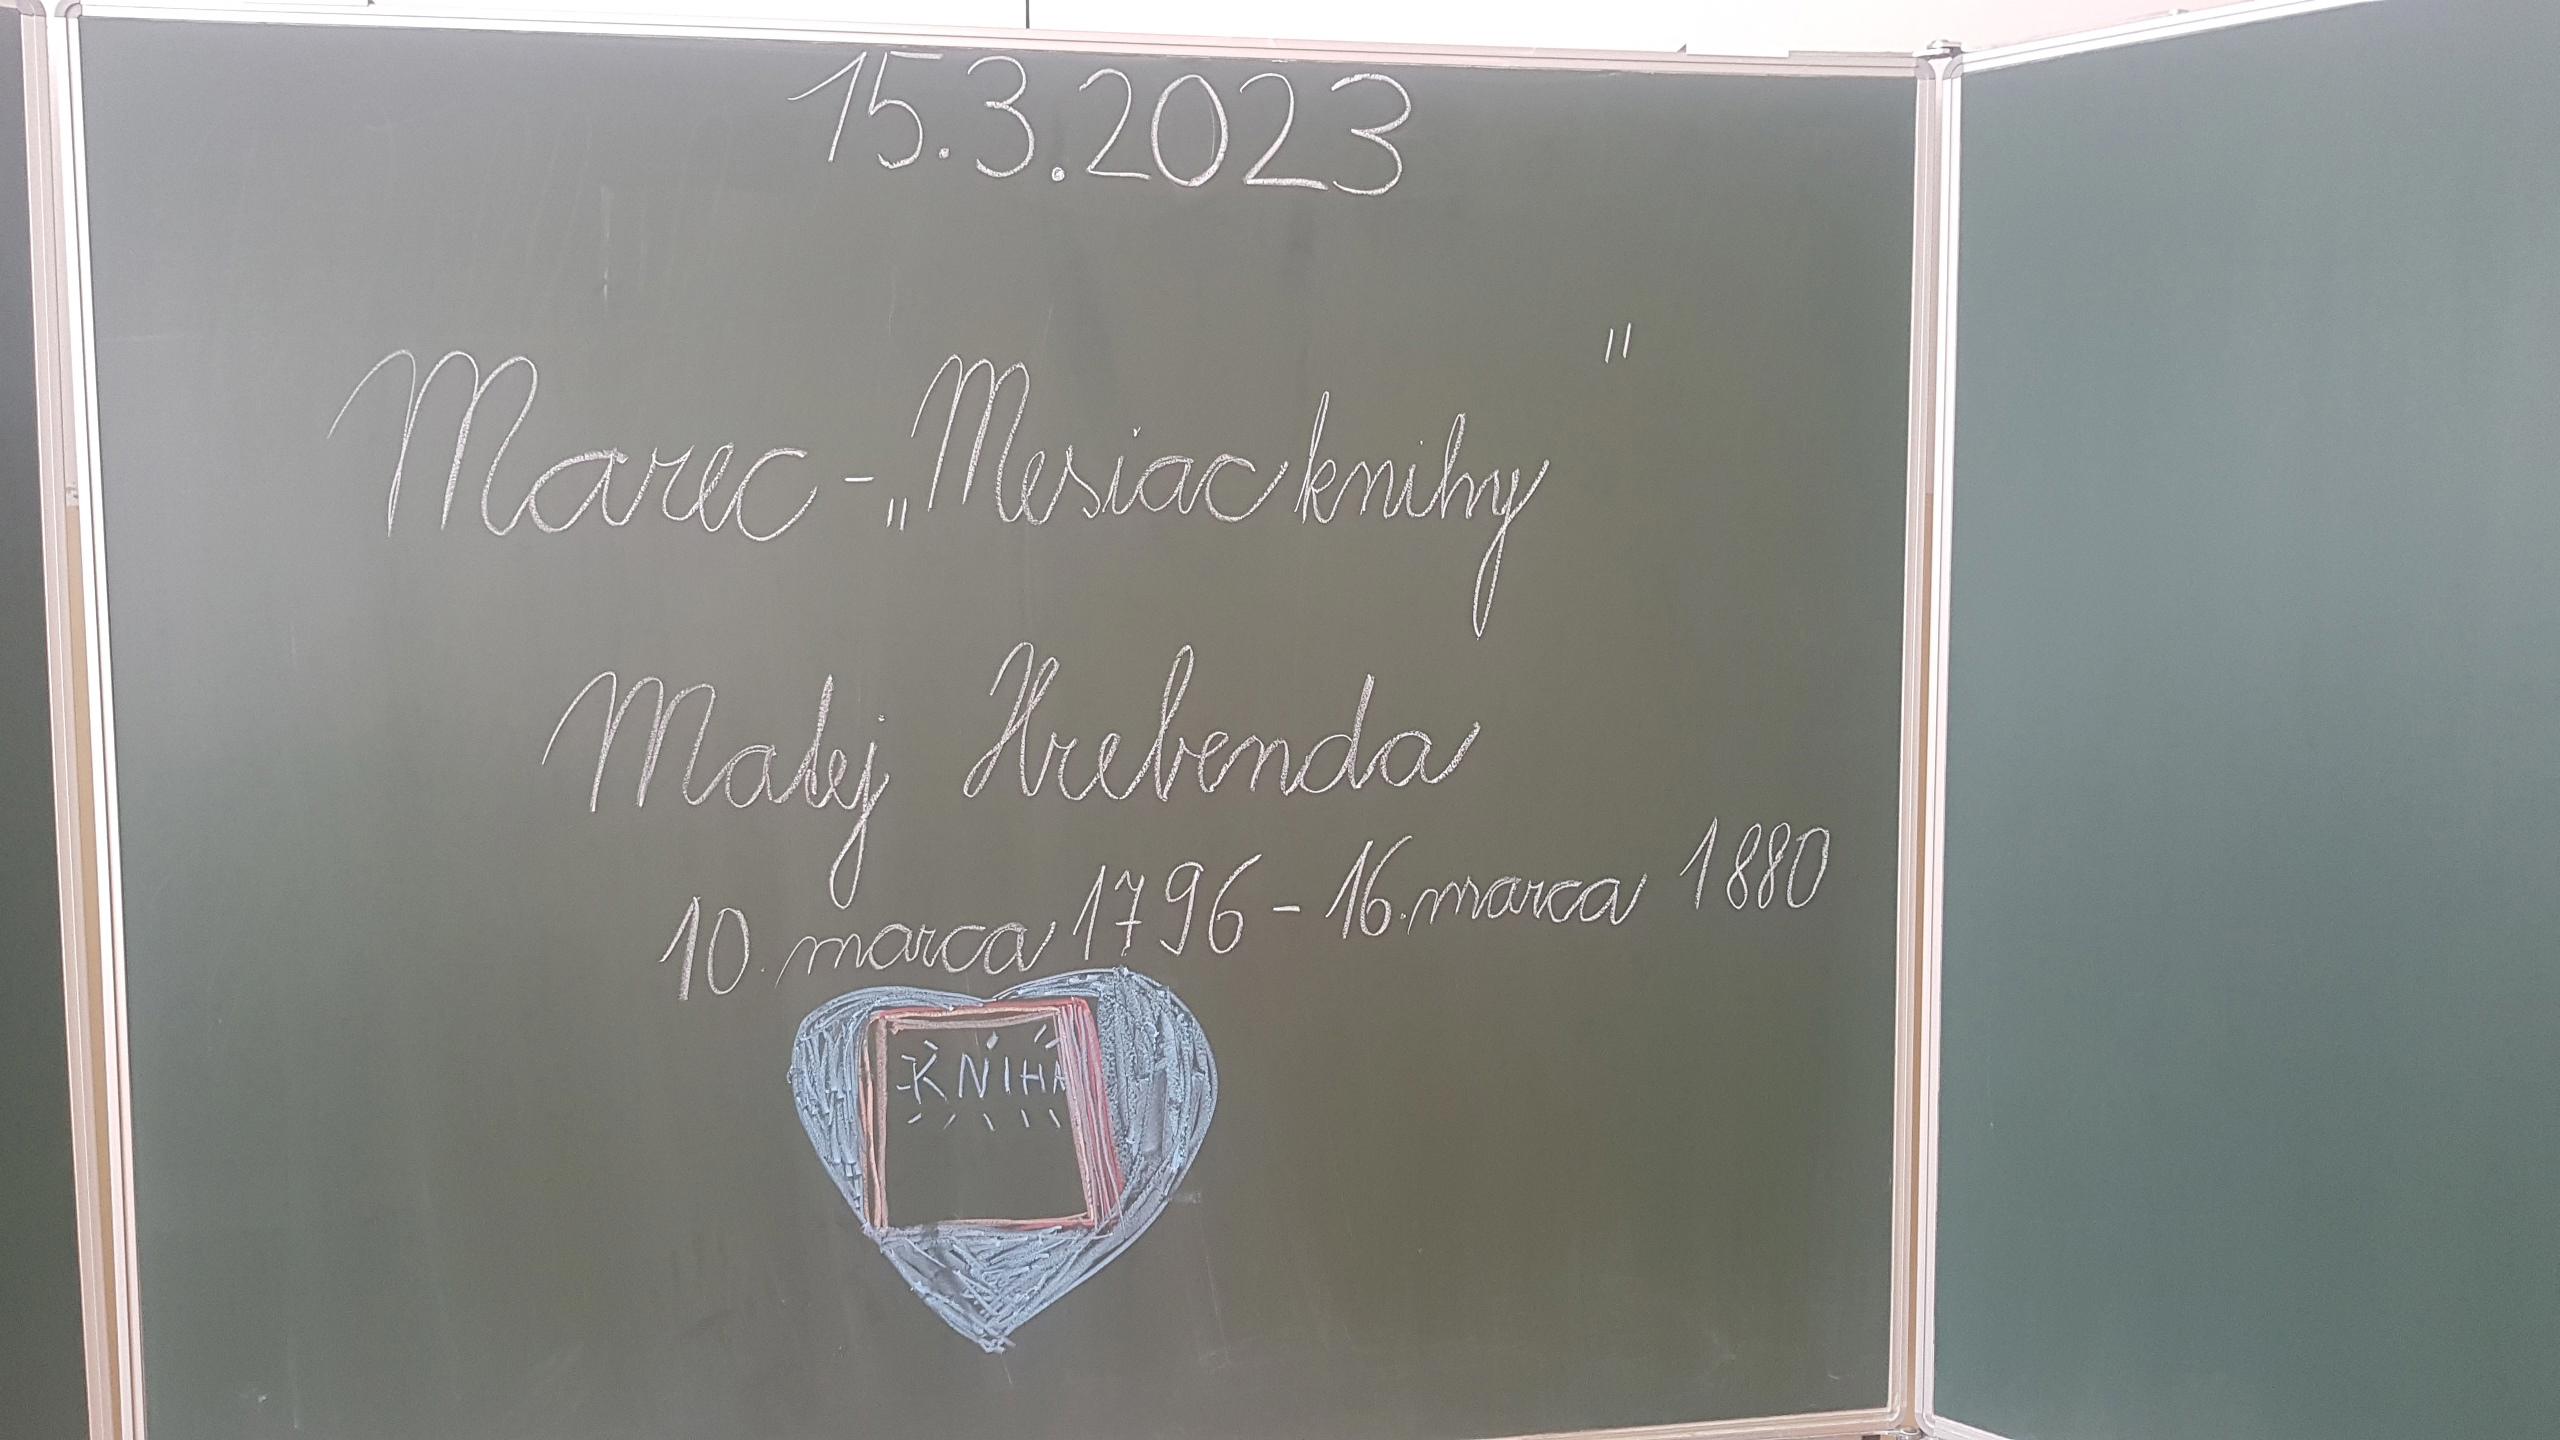 15.3.2023
Marec - „Mesiac knihy"
Matej Hrebenda
10. marca 1796 - 16. marca 1880
KNIHA